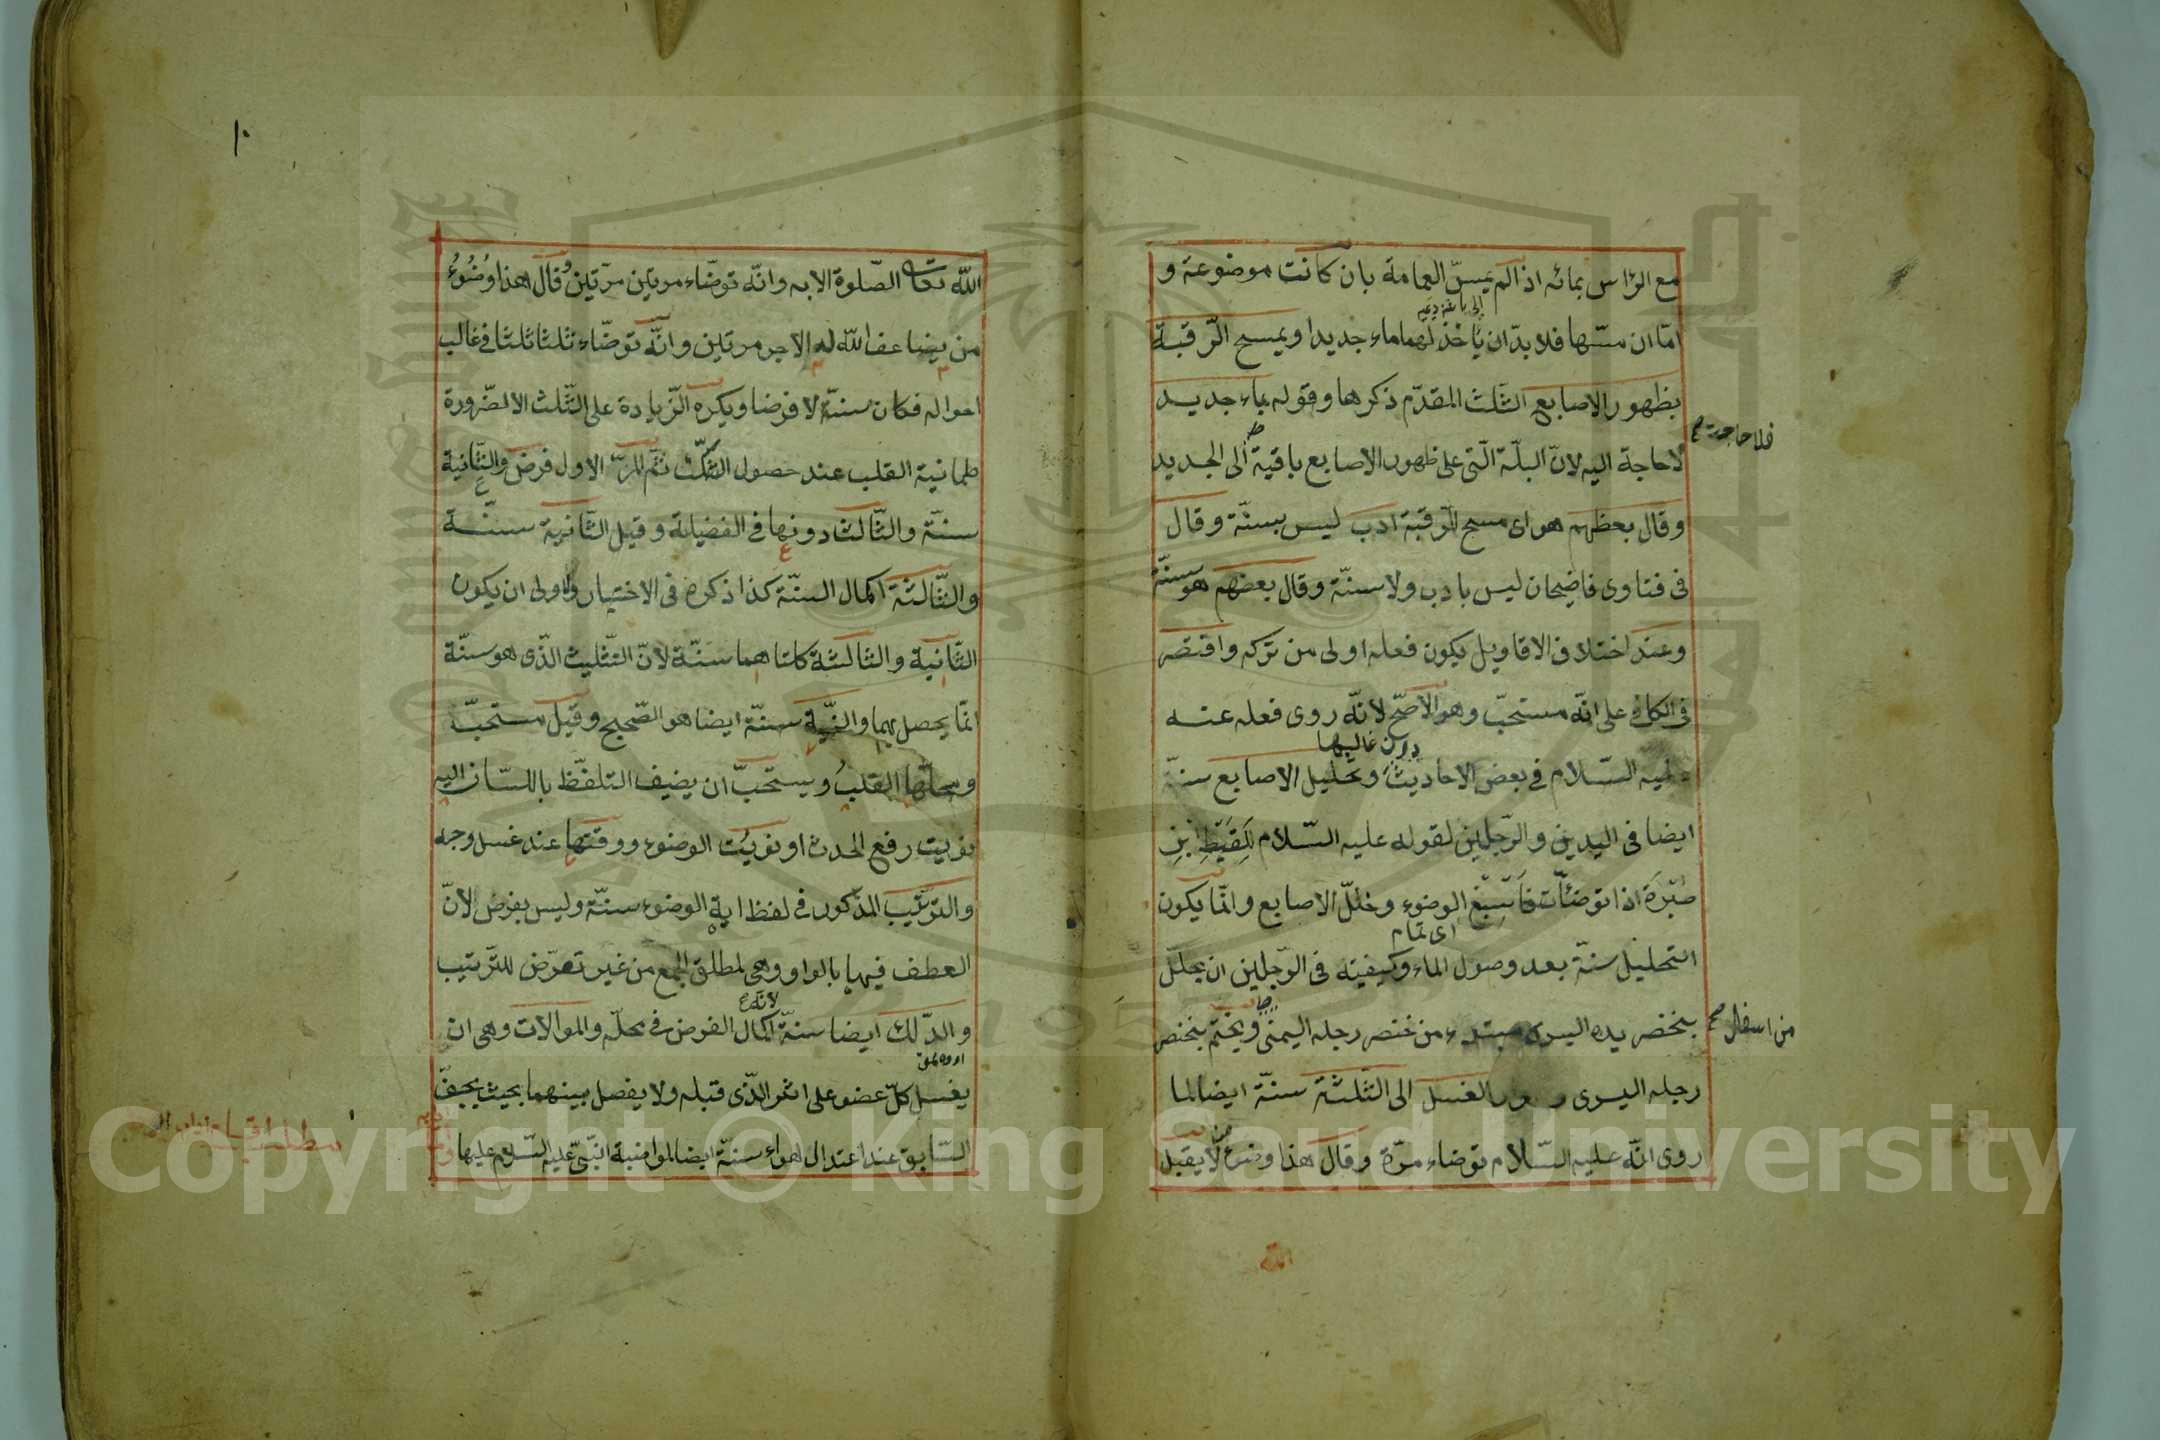 مع الرأس بمائه اذا لم يمسّ العمامة بان كانت موضوعة و
امّا ان مسّها فلا بدّ ان يأخذ لهما ماء جديدا ويمسح الرّقبة
بظهور الاصابع الثلث المقدّم ذكرها وقوله بماء جديد
فلا حاجة صح
لاحاجة اليه لانّ البلّة الّتى على ظهور الاصابع باقية الى الجديد
وقال بعظهم هو اى مسح الرّقبة ادب ليس بسنّة وقال
فى فتاوى قاضيخان ليس بادب ولا سنّة وقال بعضهم هو سنّة
وعند اختلاف الاقاويل يكون فعله اولى من تركه واقتصر
فى الكافى على انّه مستحبّ وهو الاصحّ لانّه روى فعله عنه
دون غالبها
عليه السّلام فى بعض الاحاديث وتخليل الاصابع سنّة
ايضا فى اليدين والرّجلين لقوله عليه السّلام لِلَقيط بن
صَبْرَة اذا توضّأت فَاَسْبِغ الوضوء وخلّل الاصابع وانّما يكون
اى تمام
التخليل سنّة بعد وصول الماء وكيفيته فى الرّجلين ان يخلّل
من اسفل صح
بخنصر يده اليسرى مبتدء من خنصر رجله اليمنى ويختم بخنصر
رجله اليسرى الغسل الى الثّلثة سنّة ايضا لما
روى انّه عليه السّلام توضاء مرّة وقال هذا وضوء لا يقبل
١٠
اللّه تعا الصّلوة الا به وانّه توضّاء مرتين مرّتين وقال هذا وُضُوءُ
من يضاعف اللّه له الاجر مرتين وانّه توضّاء ثلثا ثلثا فى غالب
احواله فكان سنة لا فرضا ويكره الزّيادة على الثّلث الا لضّرورة
طمانية القلب عند حصول الشّكّ ثمّ المرّة الاول فرض والثّانية
سنّة والثّالث دونها فى الفضيلة وقيل الثّانية سنّة
والثّالثة اكمال السنّة كذا ذكره فى الاختيار والاولى ان يكون
الثّانية والثالثة كلتاهما سنّة لانّ التثليث الذّى هو سنّة
انّما يحصل بهما والنيّة سنّة ايضا هو الصّحيح وقيل مستحبّة
ومحلّها القلبُ ويستحبّ ان يضيف التلفّظ باللّسان اليه
نويت رفع الحدث او نويُت الوضوء ووقتها عند غسل وجه
والترتيب المذكور فى لفظ اية الوضوء سنّة وليس بفرض لانّ
العطف فيها بالواو وهى لمطلق الجمع من غير تعرّض للترتيب
لانّه
والدّلك ايضا سنّة اكمال الفرض فى محلّه والموالات وهى ان
يغسل كلّ عضو على اثر الذّى قبله ولا يفصل بينهما بحيث يجفّ
السّابق عند اعتدال الهواء سنّة ايضا لمواضبة النّبىّ عليه السّلام عليها